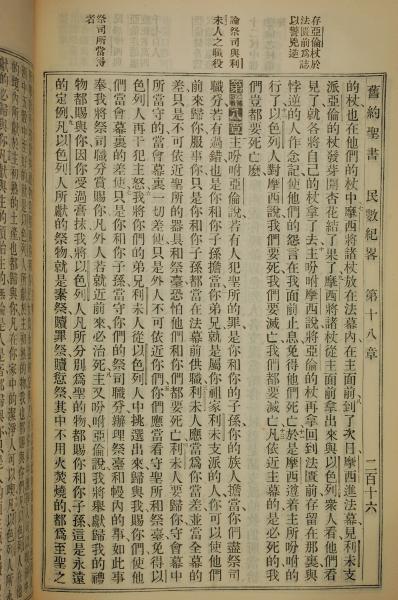 舊約聖書 民數紀畧 第十八章 二百十六
存亞倫杖於
法匱前爲誌
以警兇逆
的杖也在他們的杖中摩西將諸杖放在法幕內在主面前到了次日摩西進法幕見利未支
派亞倫的杖發芽開杏花結了果了摩西將諸杖從主面前拿出來與以色列衆人看他們看
見了就各將自己的杖拿了去主吩咐摩西說將亞倫的杖再拿回到法匱前存留在那裏與
悖逆的人作念記使他們的怨言在我面前止息免得他們死亡於是摩西遵着主所吩咐的
行了以色列人對摩西說我們要死我們要滅亡我們都要滅亡凡依近主幕的是必死的我
們豈都要死亡麼
論祭司與利
未人之職役
第十八章主吩咐亞倫說若有人犯聖所的罪是你和你的子孫你的族人擔當你們盡祭司
職分若有過錯也是你和你子孫擔當你弟兄就是屬你祖家利未支派的人你可以使他們
前來歸你服事你只是你和你子孫都當在法幕前供職利未人應當爲你當差並當全幕的
差只是不可依近聖所的器具和祭臺恐怕他們和你們都要死亡利未人要歸你守會幕中
所當守的當會幕裏一切差使只是外人不可依近你們你們應當看守聖所和祭臺免得以
色列人再干犯主怒我將你們的弟兄利未人從以色列人中挑選出來歸與我賜你們使他
們當會幕裏的差使只是你和你子孫當守你們的祭司職分辦理祭臺和幔內的事如此事
祭司所當得
者
奉我將祭司職分賞賜你凡外人若就近前來必治死主又吩咐亞倫說我將舉獻歸我的禮
物都賜與你因你受過膏抹我將以色列人凡所分別爲聖的物都賜你和你子孫這是永遠
的定例凡以色列人所獻的祭物就是素祭贖罪祭贖愆祭其中不用火焚燒的都爲至聖之